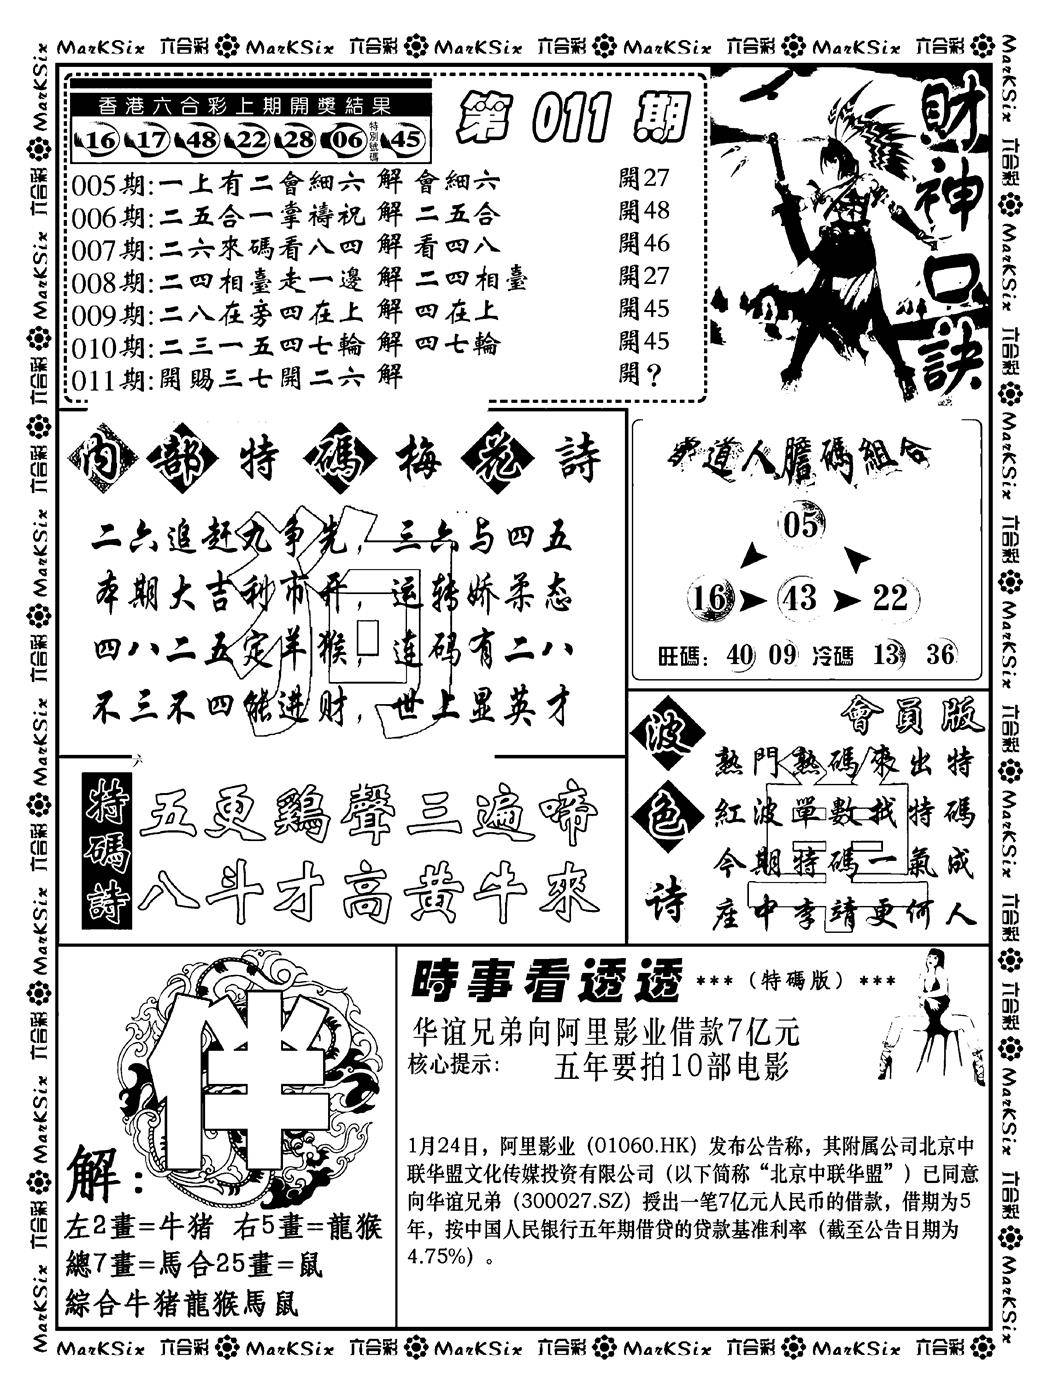 MarKSix 六合彩 MarKSix 六合彩 MarKSix 六合彩 MarKSix 六合彩 MarKSix 六合彩
香港六合彩上期開獎結果
16 17 48 22 28 06 特別號碼 45
第 011 期
005期:一上有二會細六 解 會細六 開27
006期:二五合一掌禱祝 解 二五合 開48
007期:二六來碼看八四 解 看四八 開46
008期:二四相臺走一邊 解 二四相臺 開27
009期:二八在旁四在上 解 四在上 開45
010期:二三一五四七輪 解 四七輪 開45
011期:開賜三七開二六 解 開?
財神口訣
內部特碼梅花詩
二六追赶丸争先，三六与四五
本期大吉利市开，运转娇柔态
四八二五定羊猴，连码有二八
不三不四能进财，世上显英才
狗
道人膽碼組合
05
16 43 22
旺碼: 40 09 冷碼 13 36
波色诗
會員版
熱門熱碼來出特
紅波單數找特碼
今期特碼一氣成
座中李靖更何人
單
特碼詩
五更鷄聲三遍啼
八斗才高黄牛來
解:
左2畫=牛猪 右5畫=龍猴
總7畫=馬合25畫=鼠
綜合牛猪龍猴馬鼠
時事看透透 ***（特碼版）***
华谊兄弟向阿里影业借款7亿元
核心提示: 五年要拍10部电影
1月24日，阿里影业（01060.HK）发布公告称，其附属公司北京中
联华盟文化传媒投资有限公司（以下简称“北京中联华盟”）已同意
向华谊兄弟（300027.SZ）授出一笔7亿元人民币的借款，借期为5
年，按中国人民银行五年期借贷的贷款基准利率（截至公告日期为
4.75%）。
MarKSix 六合彩 MarKSix 六合彩 MarKSix 六合彩 MarKSix 六合彩 MarKSix 六合彩